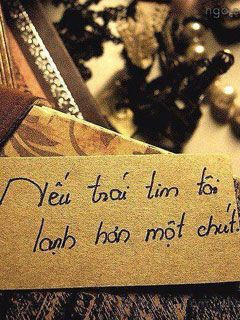 Nếu trái tim tôi
lạnh hơn một chút!